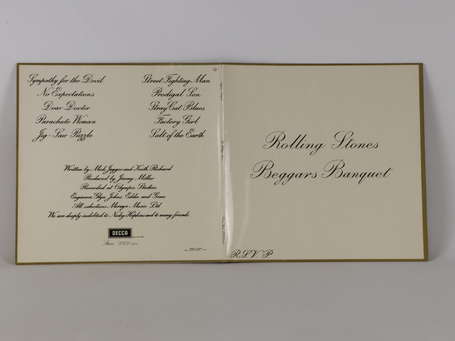 Sympathy for the Devil
No Expectations
Dear Doctor
Parachute Woman
Jig-Saw Puzzle
Street Fighting Man
Prodigal Son
Stray Cat Blues
Factory Girl
Salt of the Earth
Written by Mick Jagger and Keith Richard
Produced by Jimmy Miller
Recorded at Olympic Studios
Engineer Glyn Johns, Eddie and Gene
All selections Mirage Music Ltd
We are deeply indebted to Nicky Hopkins and to many friends.
DECCA
Rolling Stones
Beggars Banquet
R.S.V.P.